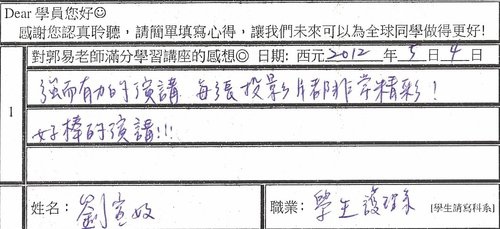 Dear 學員您好☺
感謝您認真聆聽，請簡單填寫心得，讓我們未來可以為全球同學做得更好!
對郭易老師滿分學習講座的感想☺ 日期: 西元2012 年5日4日
1
強而有力的演講 每張投影片都非常精彩!
好棒的演講!!!
姓名: 劉宣妏
職業: 學生護理系 [學生請寫科系]